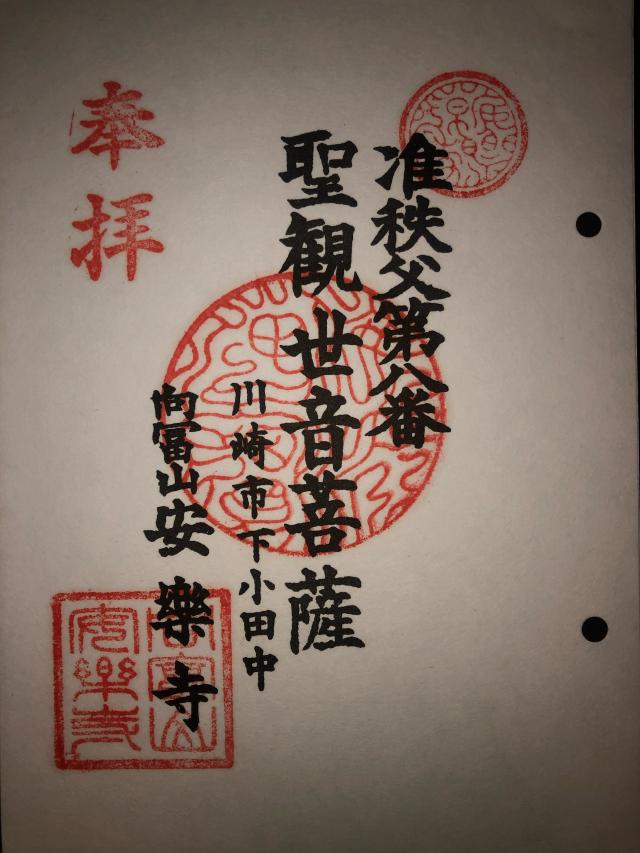 准秩父第八番
聖観世音菩薩
川崎市下小田中
向冨山安樂寺
奉拝
安樂寺